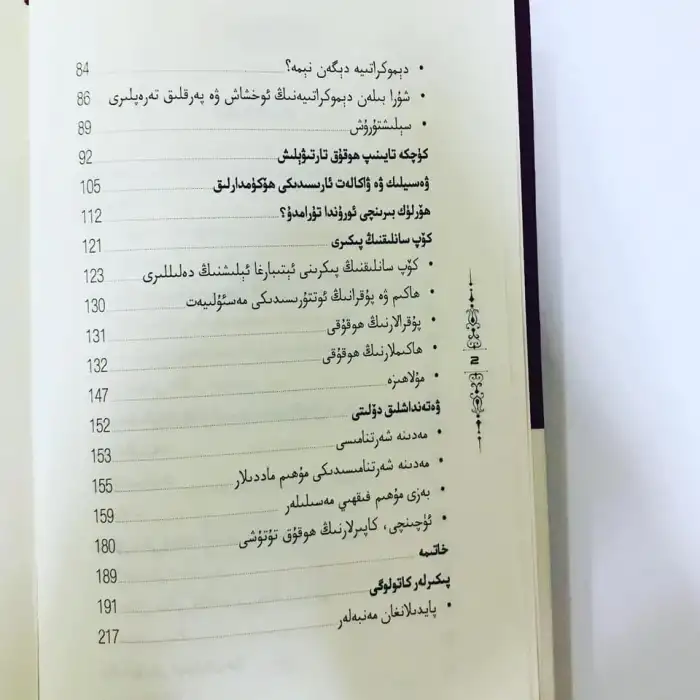 • دېموكراتىيە دېگەن نېمە؟ 84
• شۇرا بىلەن دېموكراتىيەنىڭ ئوخشاش ۋە پەرقلىق تەرەپلىرى 86
• سېلىشتۇرۇش 89
كۈچكە تايىنىپ ھوقۇق تارتىۋېلىش 92
ۋەسىيلىك ۋە ۋاكالەت ئارىسىدىكى ھۆكۈمدارلىق 105
ھۆرلۈك بىرىنچى ئورۇندا تۇرامدۇ؟ 112
كۆپ سانلىقنىڭ پىكىرى 121
• كۆپ سانلىقنىڭ پىكىرىنى ئېتىبارغا ئېلىشنىڭ دەلىللىرى 123
• ھاكىم ۋە پۇقرانىڭ ئوتتۇرىسىدىكى مەسئۇلىيەت 130
• پۇقرالارنىڭ ھوقۇقى 131
• ھاكىملارنىڭ ھوقۇقى 132
• مۇلاھىزە 147
ۋەتەنداشلىق دۆلىتى 152
• مەدىنە شەرتنامىسى 153
• مەدىنە شەرتنامىسىدىكى مۇھىم ماددىلار 155
• بەزى مۇھىم فىقھىي مەسىلىلەر 159
• ئۈچىنچى، كاپىرلارنىڭ ھوقۇق تۇتۇشى 180
خاتىمە 189
پىكىرلەر كاتولوگى 191
• پايدىلانغان مەنبەلەر 217
2